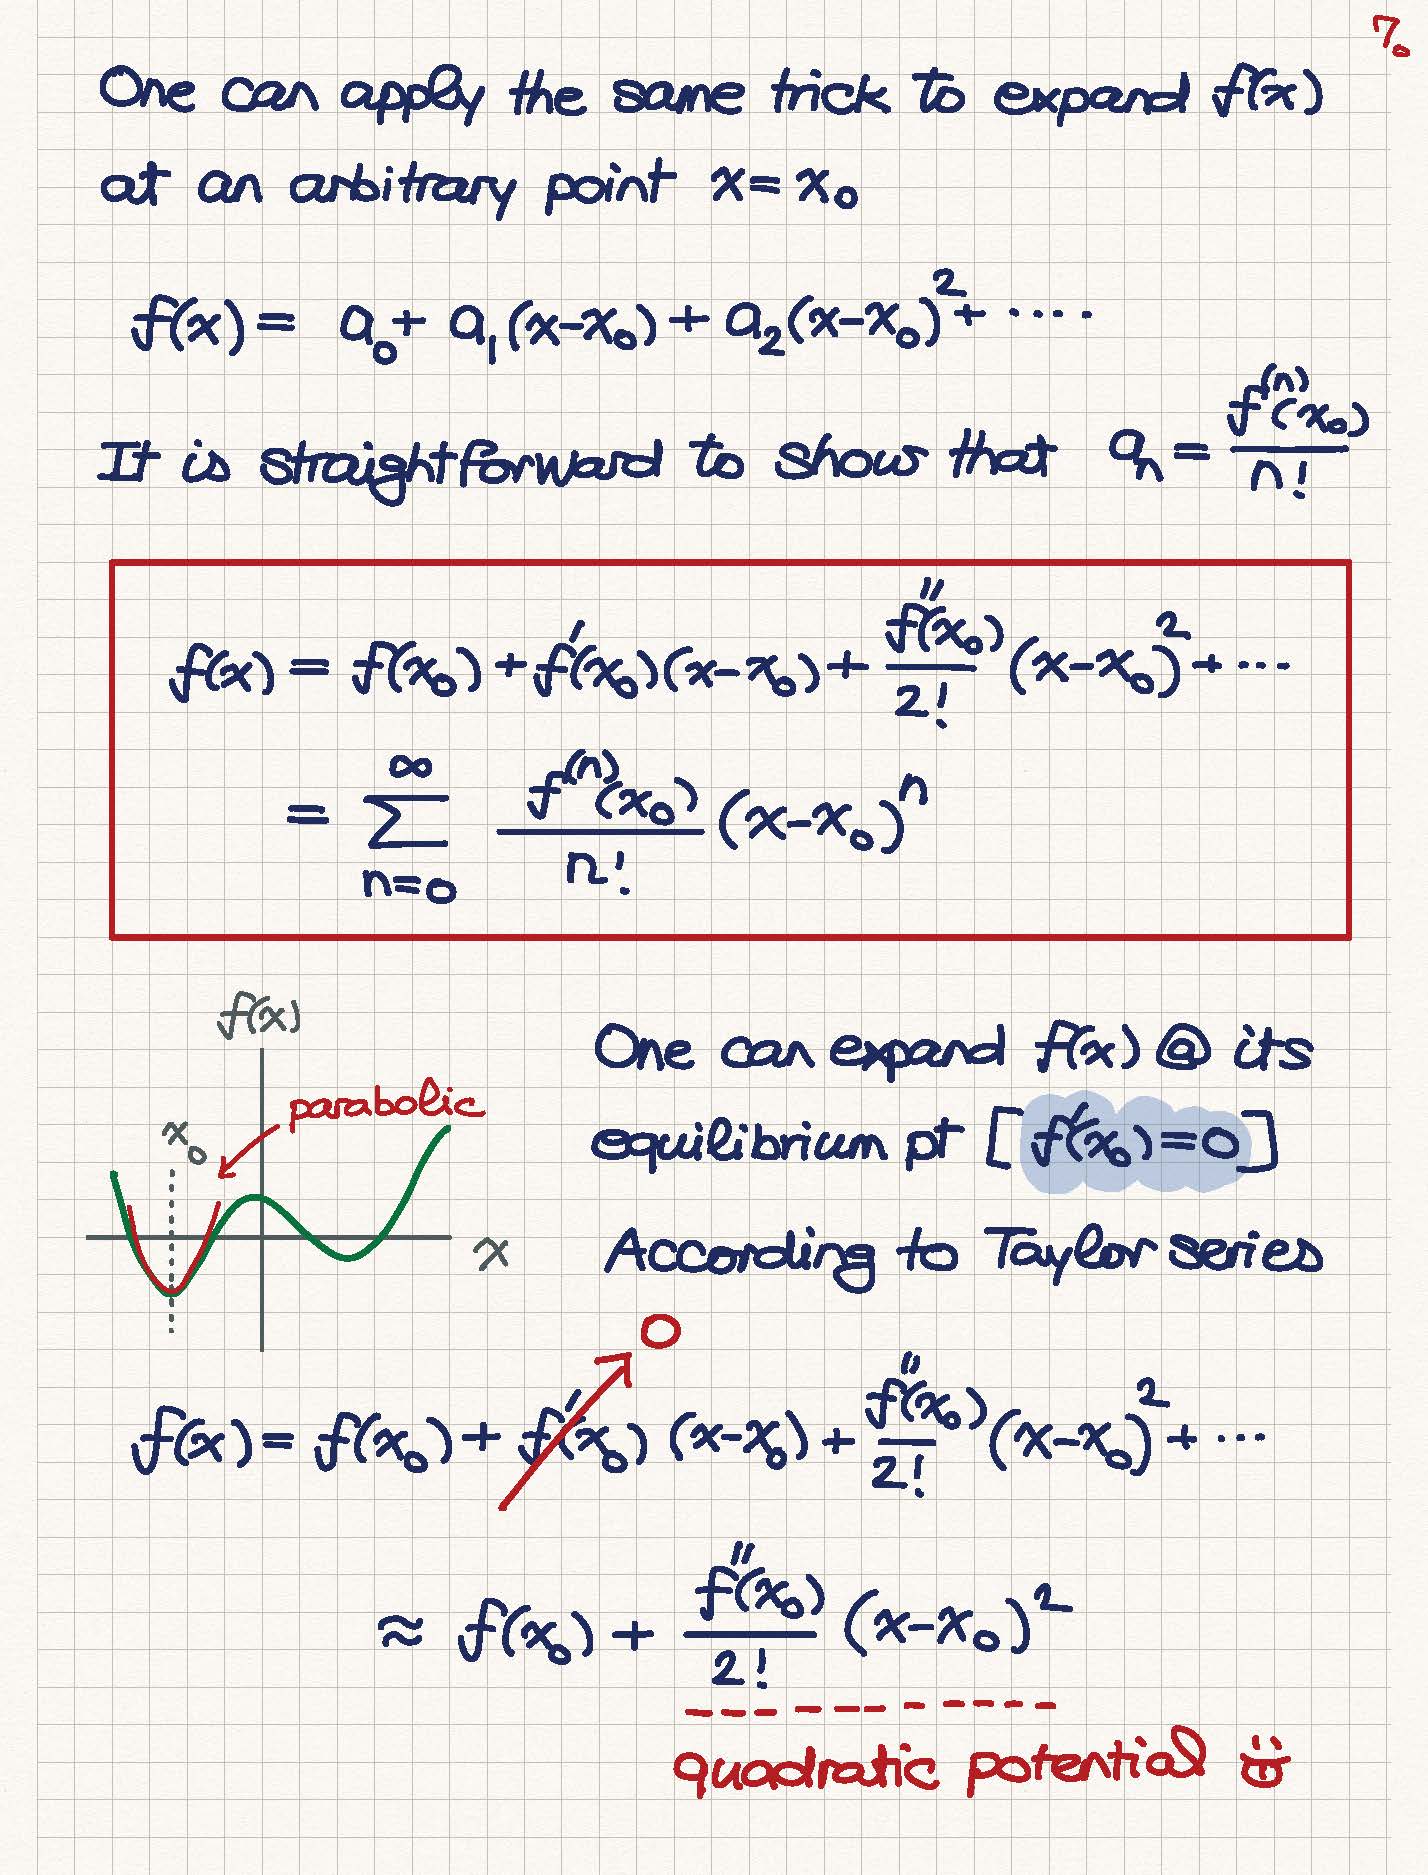 7。
One can apply the same trick to expand f(x)
at an arbitrary point x = x₀
f(x) = a₀ + a₁(x-x₀) + a₂(x-x₀)² + ·····
It is straightforward to show that aₙ = f⁽ⁿ⁾(x₀) / n!
f(x) = f(x₀) + f′(x₀)(x-x₀) + f″(x₀)/2! (x-x₀)² + ···
= ∑ₙ₌₀^∞ f⁽ⁿ⁾(x₀)/n! (x-x₀)ⁿ
f(x)
parabolic
x₀
x
One can expand f(x) @ its
equilibrium pt [f′(x₀) = 0]
According to Taylor series
0
f(x) = f(x₀) + f′(x₀) (x-x₀) + f″(x₀)/2! (x-x₀)² + ···
≈ f(x₀) + f″(x₀)/2! (x-x₀)²
quadratic potential